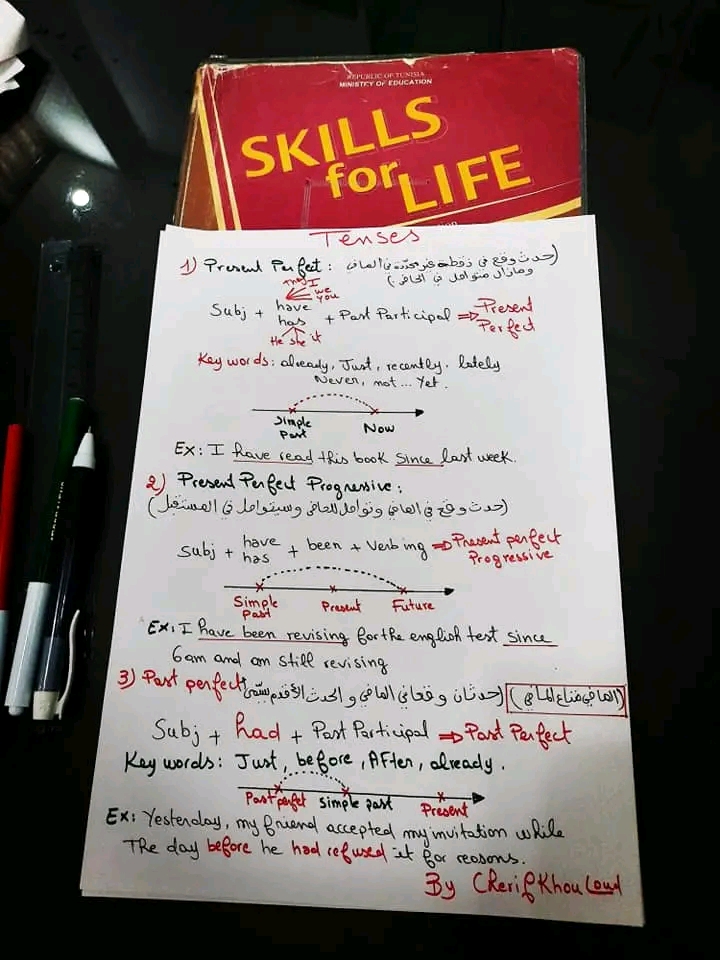 REPUBLIC OF TUNISIA
MINISTRY OF EDUCATION
SKILLS
for LIFE
Tenses
1) Present Perfect : (حدث وقع في نقطة غير محددة في الماضي
ومازال متواصل في الحاضر)
They I
we
you
Subj + have
has + Past Participal ⇒ Present
Perfect
He she it
Key words: already, Just, recently. lately
Never, not... Yet.
Simple
Past
Now
Ex: I have read this book since last week.
2) Present Perfect Progressive :
(حدث وقع في الماضي وتواصل للحاضر وسيتواصل في المستقبل)
Subj + have
has + been + Verb ing ⇒ Present perfect
Progressive
Simple
past
Present
Future
Ex: I have been revising for the english test since
6am and am still revising
3) Past perfect (حدثان وقعا في الماضي و الحدث الأقدم يسمى (الماضي متاع الماضي)
Subj + had + Past Participal ⇒ Past Perfect
Key words: Just, before, After, already.
Past perfet
simple past
Present
Ex: Yesterday, my friend accepted my invitation while
The day before he had refused it for reasons.
By Cherif Khouloud